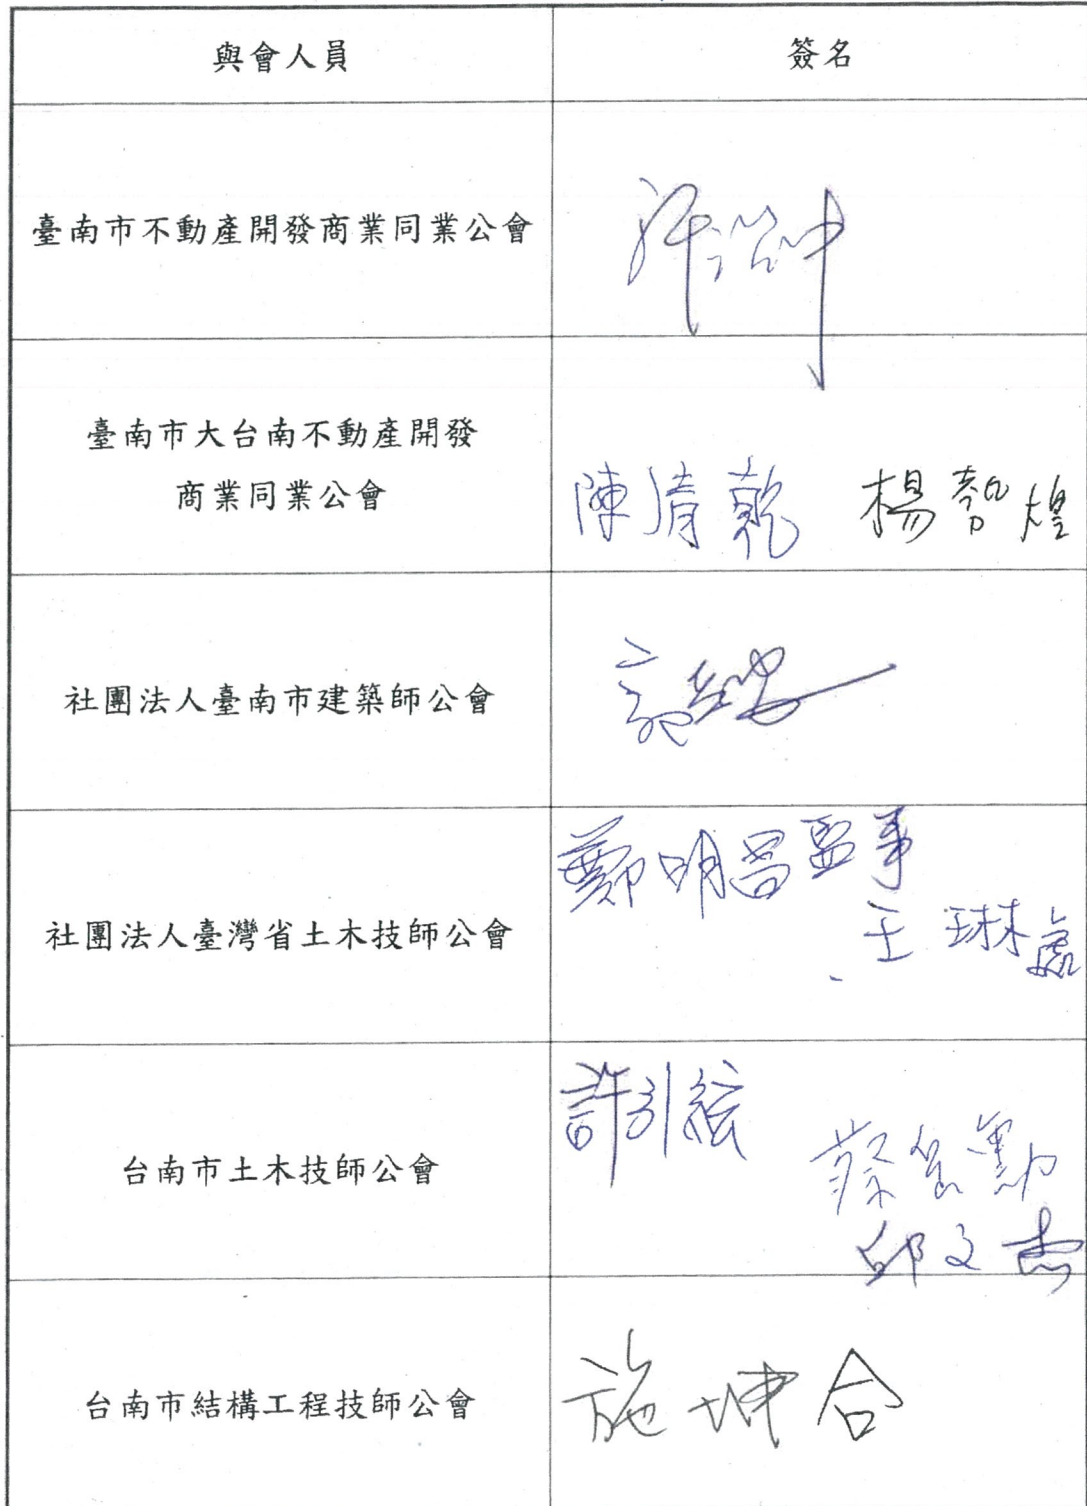 與會人員
簽名
臺南市不動產開發商業同業公會
臺南市大台南不動產開發
商業同業公會
陳清乾 楊智煌
社團法人臺南市建築師公會
社團法人臺灣省土木技師公會
鄭明昌監事
王琳
台南市土木技師公會
許引絃
蔡
邱文杰
台南市結構工程技師公會
施坤合